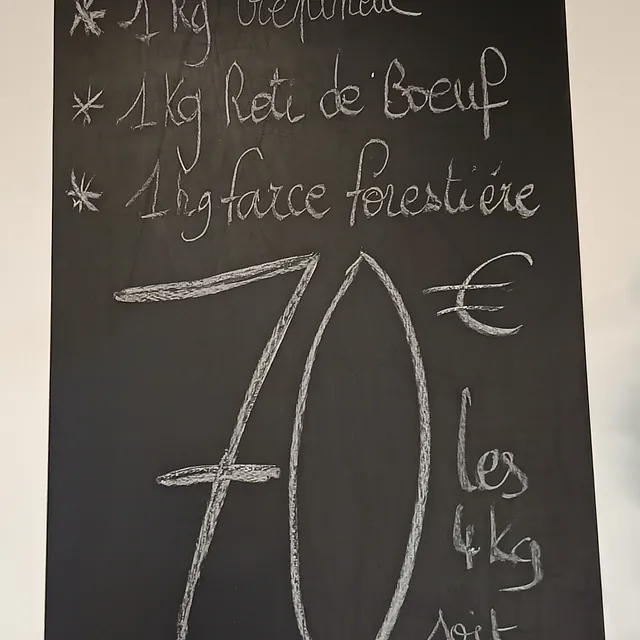 * 1 Kg Crépinette
* 1 Kg Roti de Boeuf
* 1 kg farce forestière
70 €
les
4 kg
soit